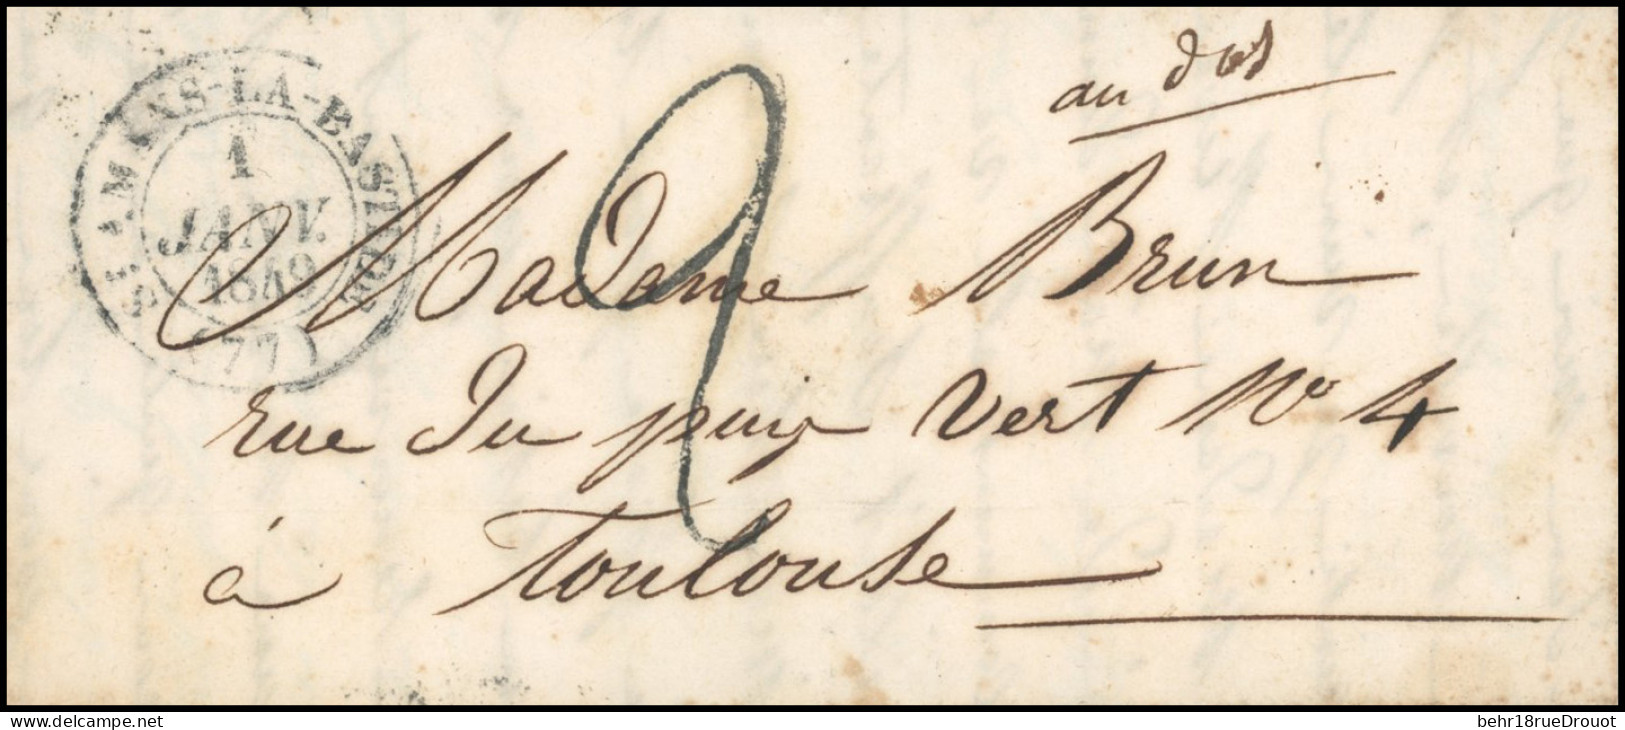 ST AMANS-LA-BASTIDE
1
JANV.
1849
(77)
au dos
2
Madame Brun
rue du puix vert No 4
à Toulouse
www.delcampe.net
behr18rueDrouot